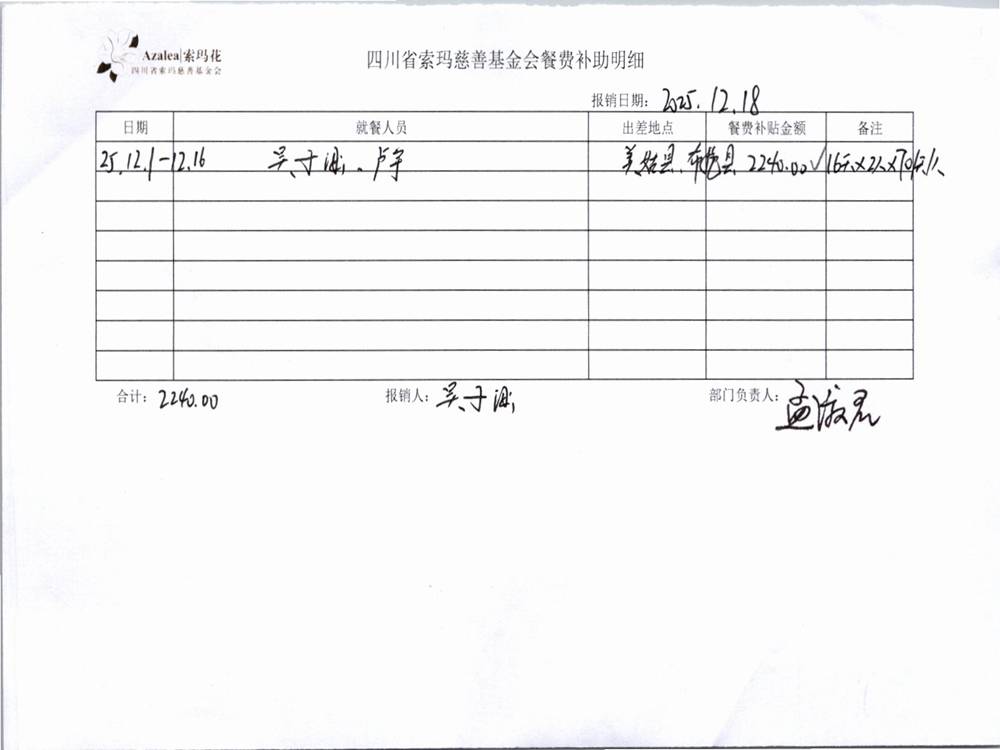 Azalea|索玛花
四川省索玛慈善基金会
四川省索玛慈善基金会餐费补助明细
报销日期: 2025.12.18
日期 就餐人员 出差地点 餐费补贴金额 备注
25.12.1-12.16 吴于 、卢宇 美姑县、布拖县 2240.00√ 16天×2人×70元/人
合计: 2240.00 报销人: 吴于 部门负责人: 孟